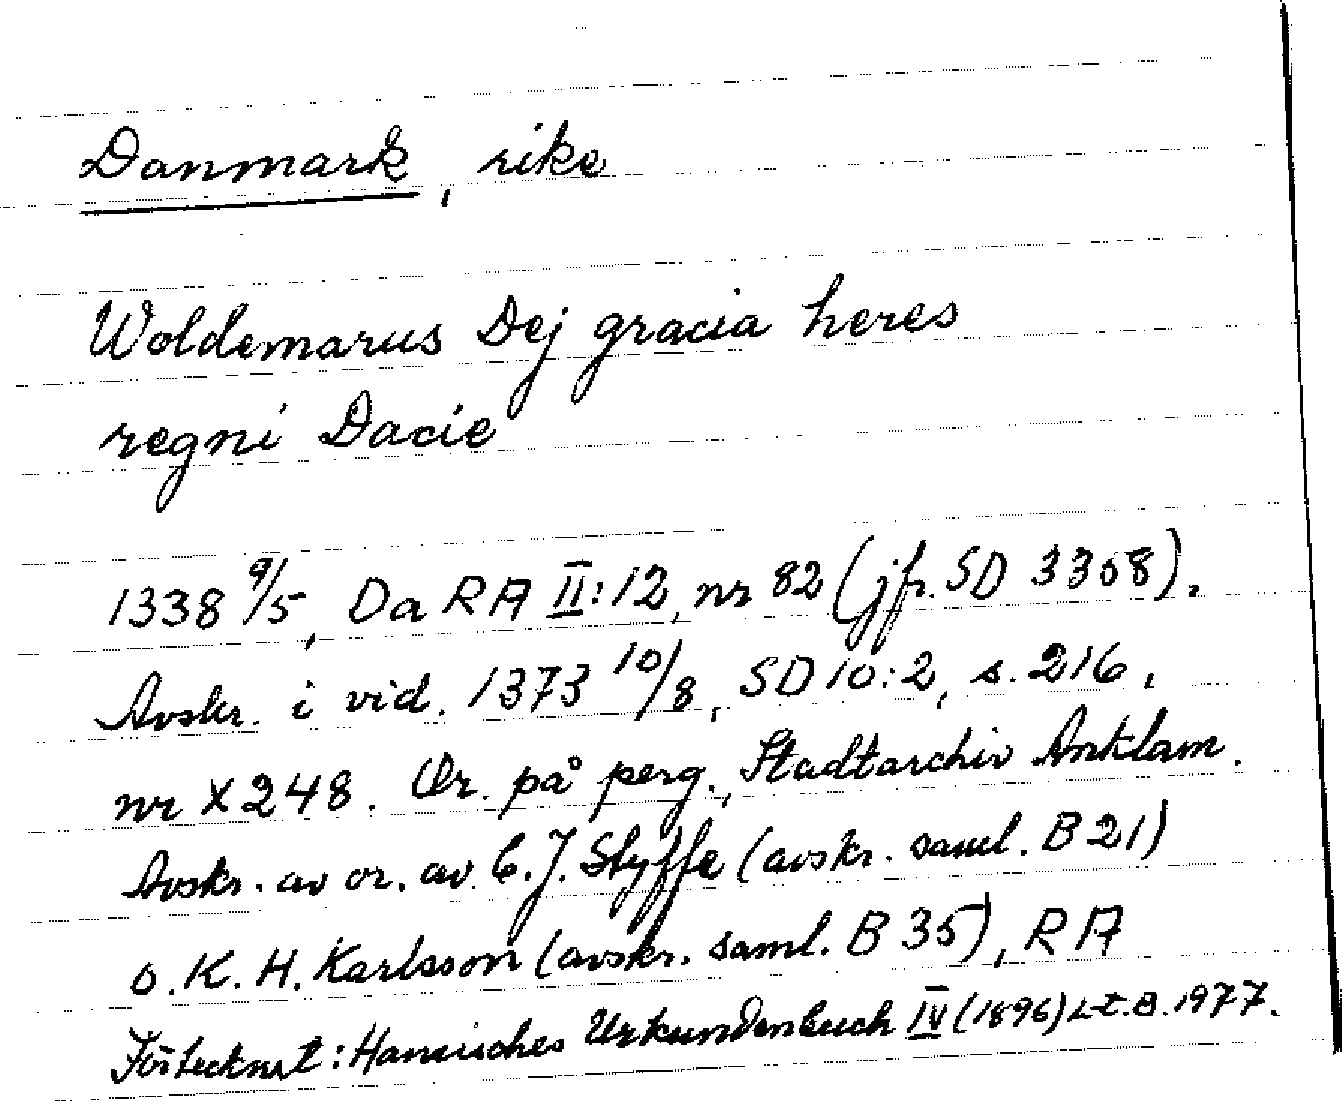 Danmark, rike
Woldemarus Dej gracia heres
regni Dacie
1338 9/5, Da RA II:12, nr 82 (jfr. SD 3358).
Avskr. i vid. 1373 10/8, SD 10:2, s. 216,
nr X 248. Or. på perg., Stadtarchiv Anklam.
Avskr. av or. av C. J. Styffe (avskr. saml. B 21)
o. K. H. Karlsson (avskr. saml. B 35), RA
Förtecknat: Hansisches Urkundenbuch IV (1896) L-t.B. 1977.